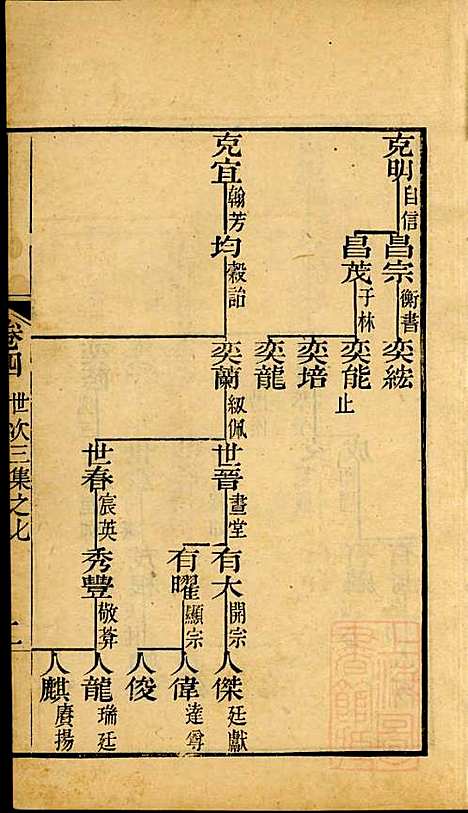 克明 自信
昌宗 衡書
奕紘
昌茂 子林
奕能 止
奕培
奕龍
克宜 翰芳
均 穀詒
奕蘭 紉佩
世晉 晝堂
有大 開宗
人傑 廷獻
有曜 顯宗
人偉 達尊
人俊
世春 宸英
秀豐 敬莾
人龍 瑞廷
人麒 賡揚
卷四 世次三集之七 二